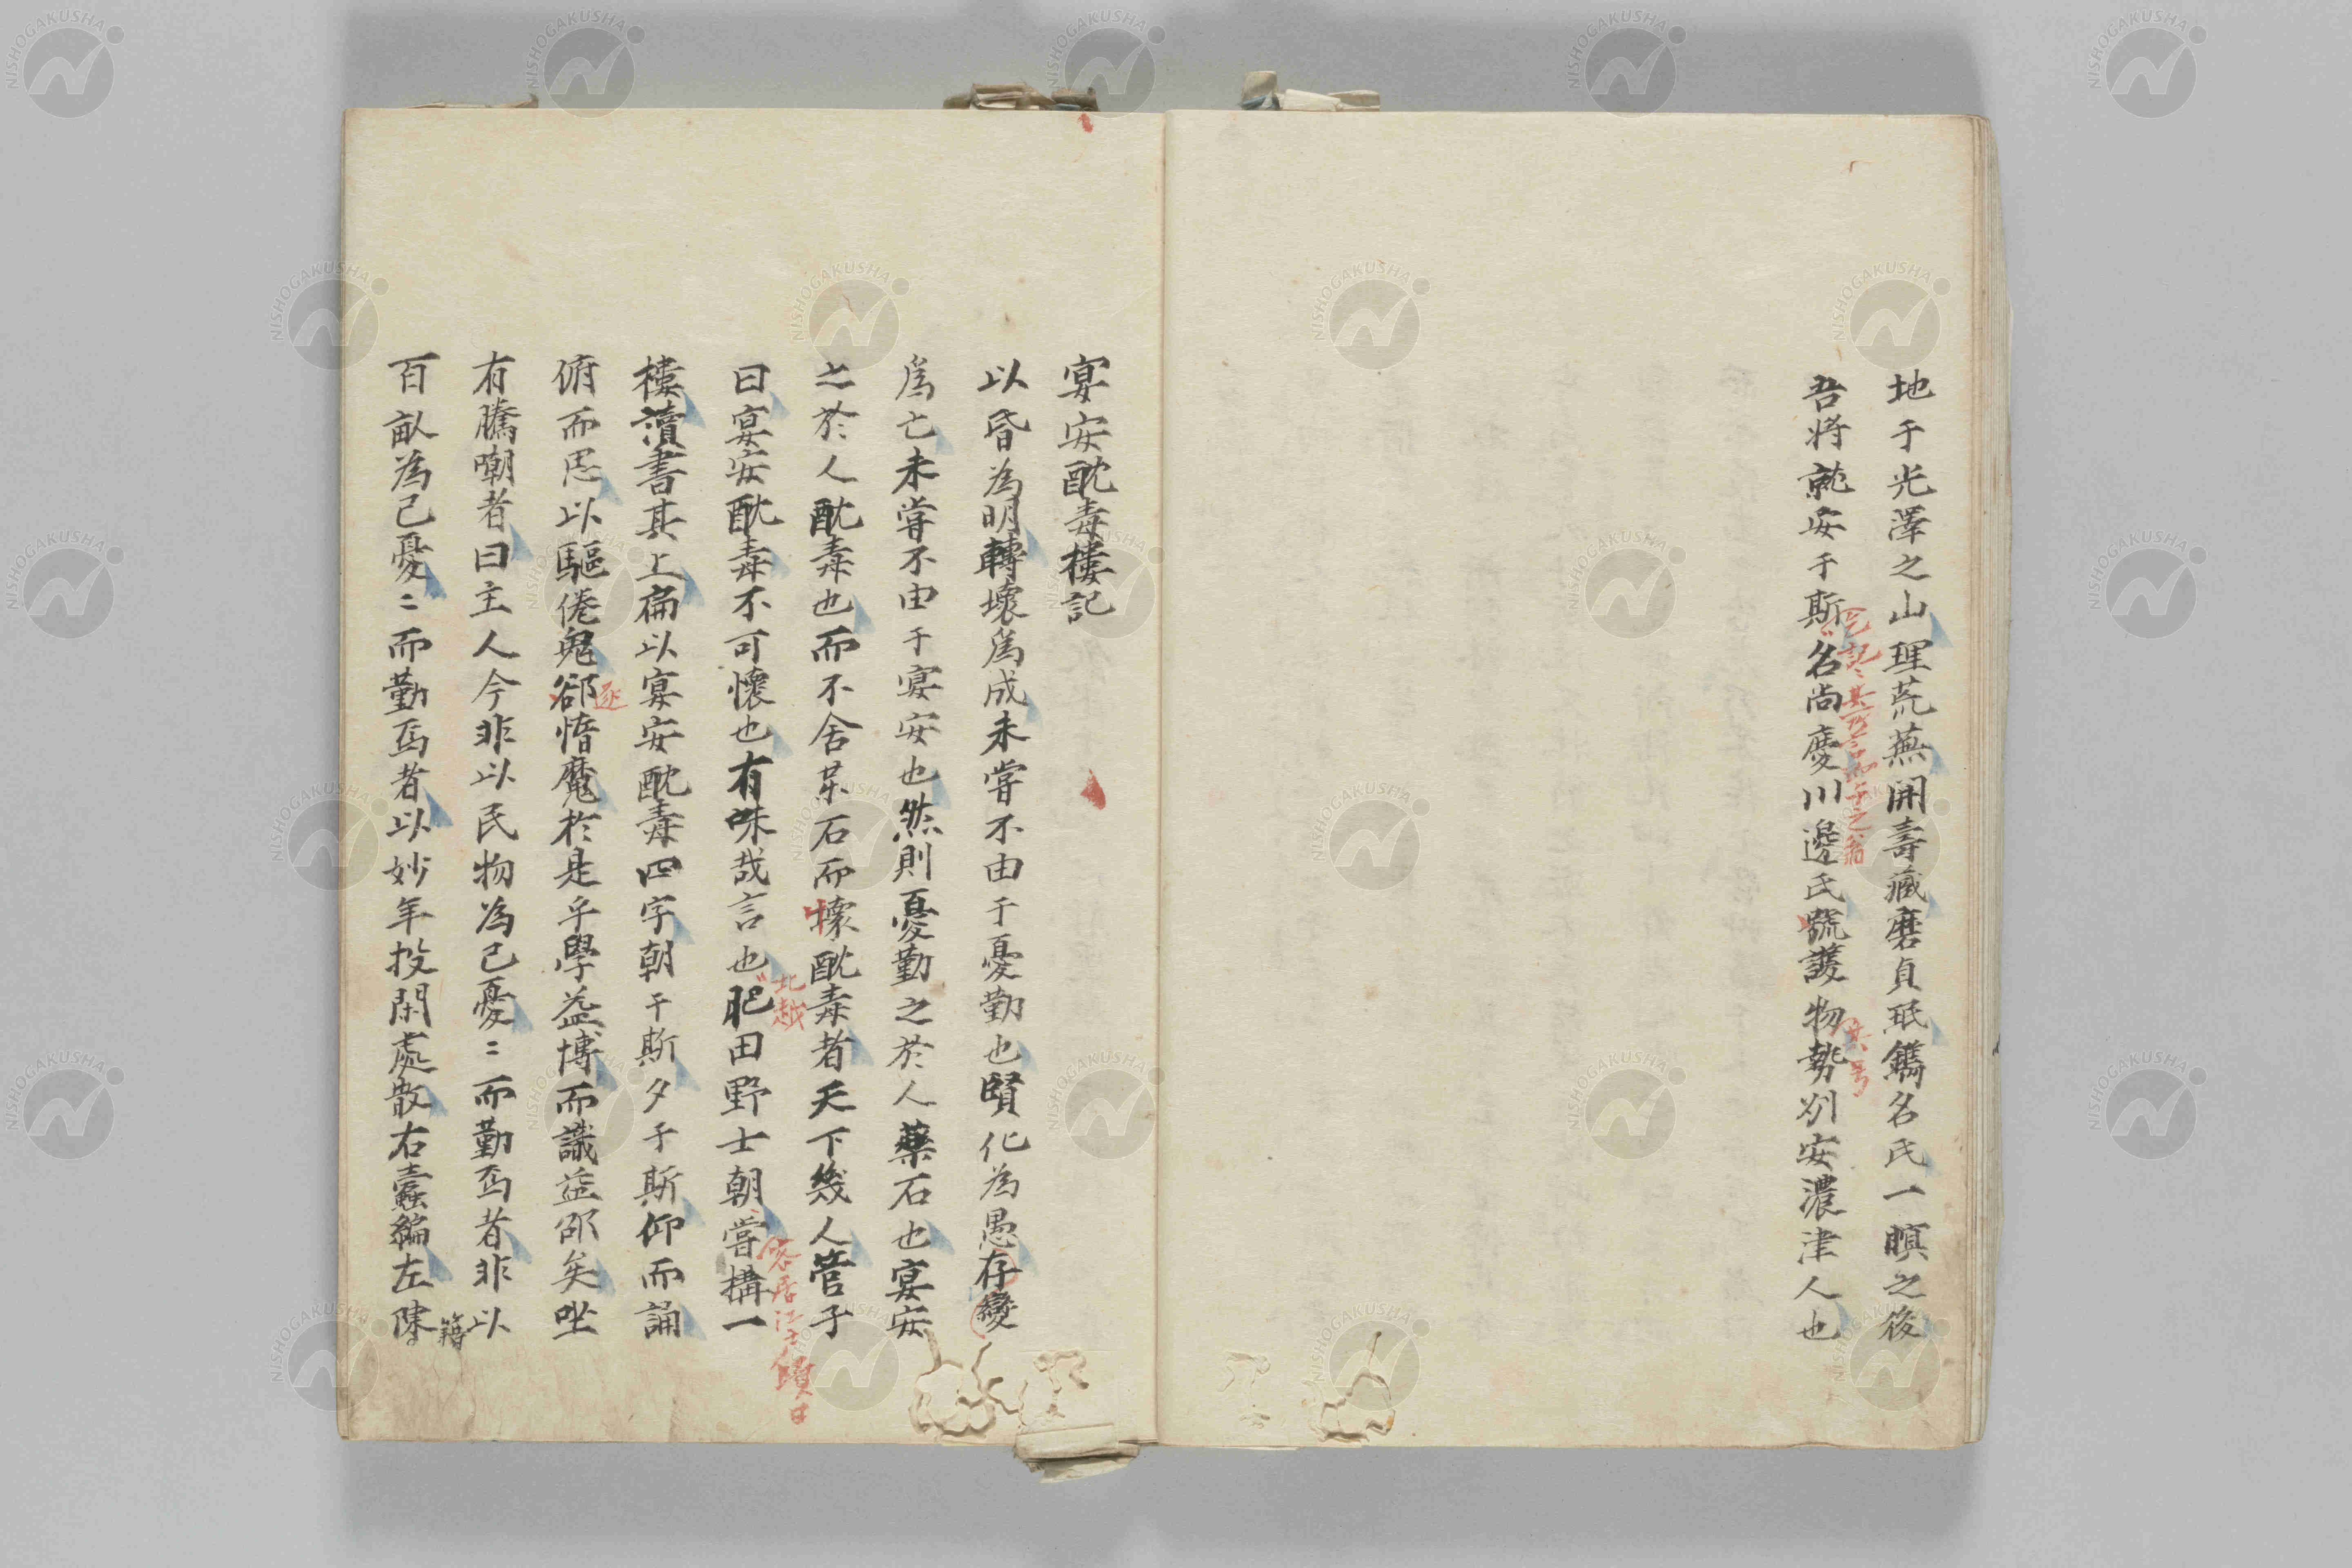 地于光澤之山理荒蕪開壽藏磨貞珉鐫名氏一瞑之後
吾將就安于斯名尚慶川邊氏號護物勢州安濃津人也
乞記其所言而予之翁
其号
宴安酖毒樓記
以昏為明轉壞為成未嘗不由于憂勤也賢化為愚存變
為亡未嘗不由于宴安也然則憂勤之於人藥石也宴安
之於人酖毒也而不舍茱石而懷酖毒者天下幾人管子
曰宴安酖毒不可懷也有味哉言也肥田野士朝嘗構一
北越
客居江士
樓讀書其上扁以宴安酖毒四字朝于斯夕于斯仰而誦
俯而思以驅倦鬼卻惰魔於是乎學益博而識益邵矣坐
有騰嘲者曰主人今非以民物為己憂〻而勤焉者非以
百畝為己憂〻而勤焉者以妙年投閑處散右蠹編左陳
籍
NISHOGAKUSHA